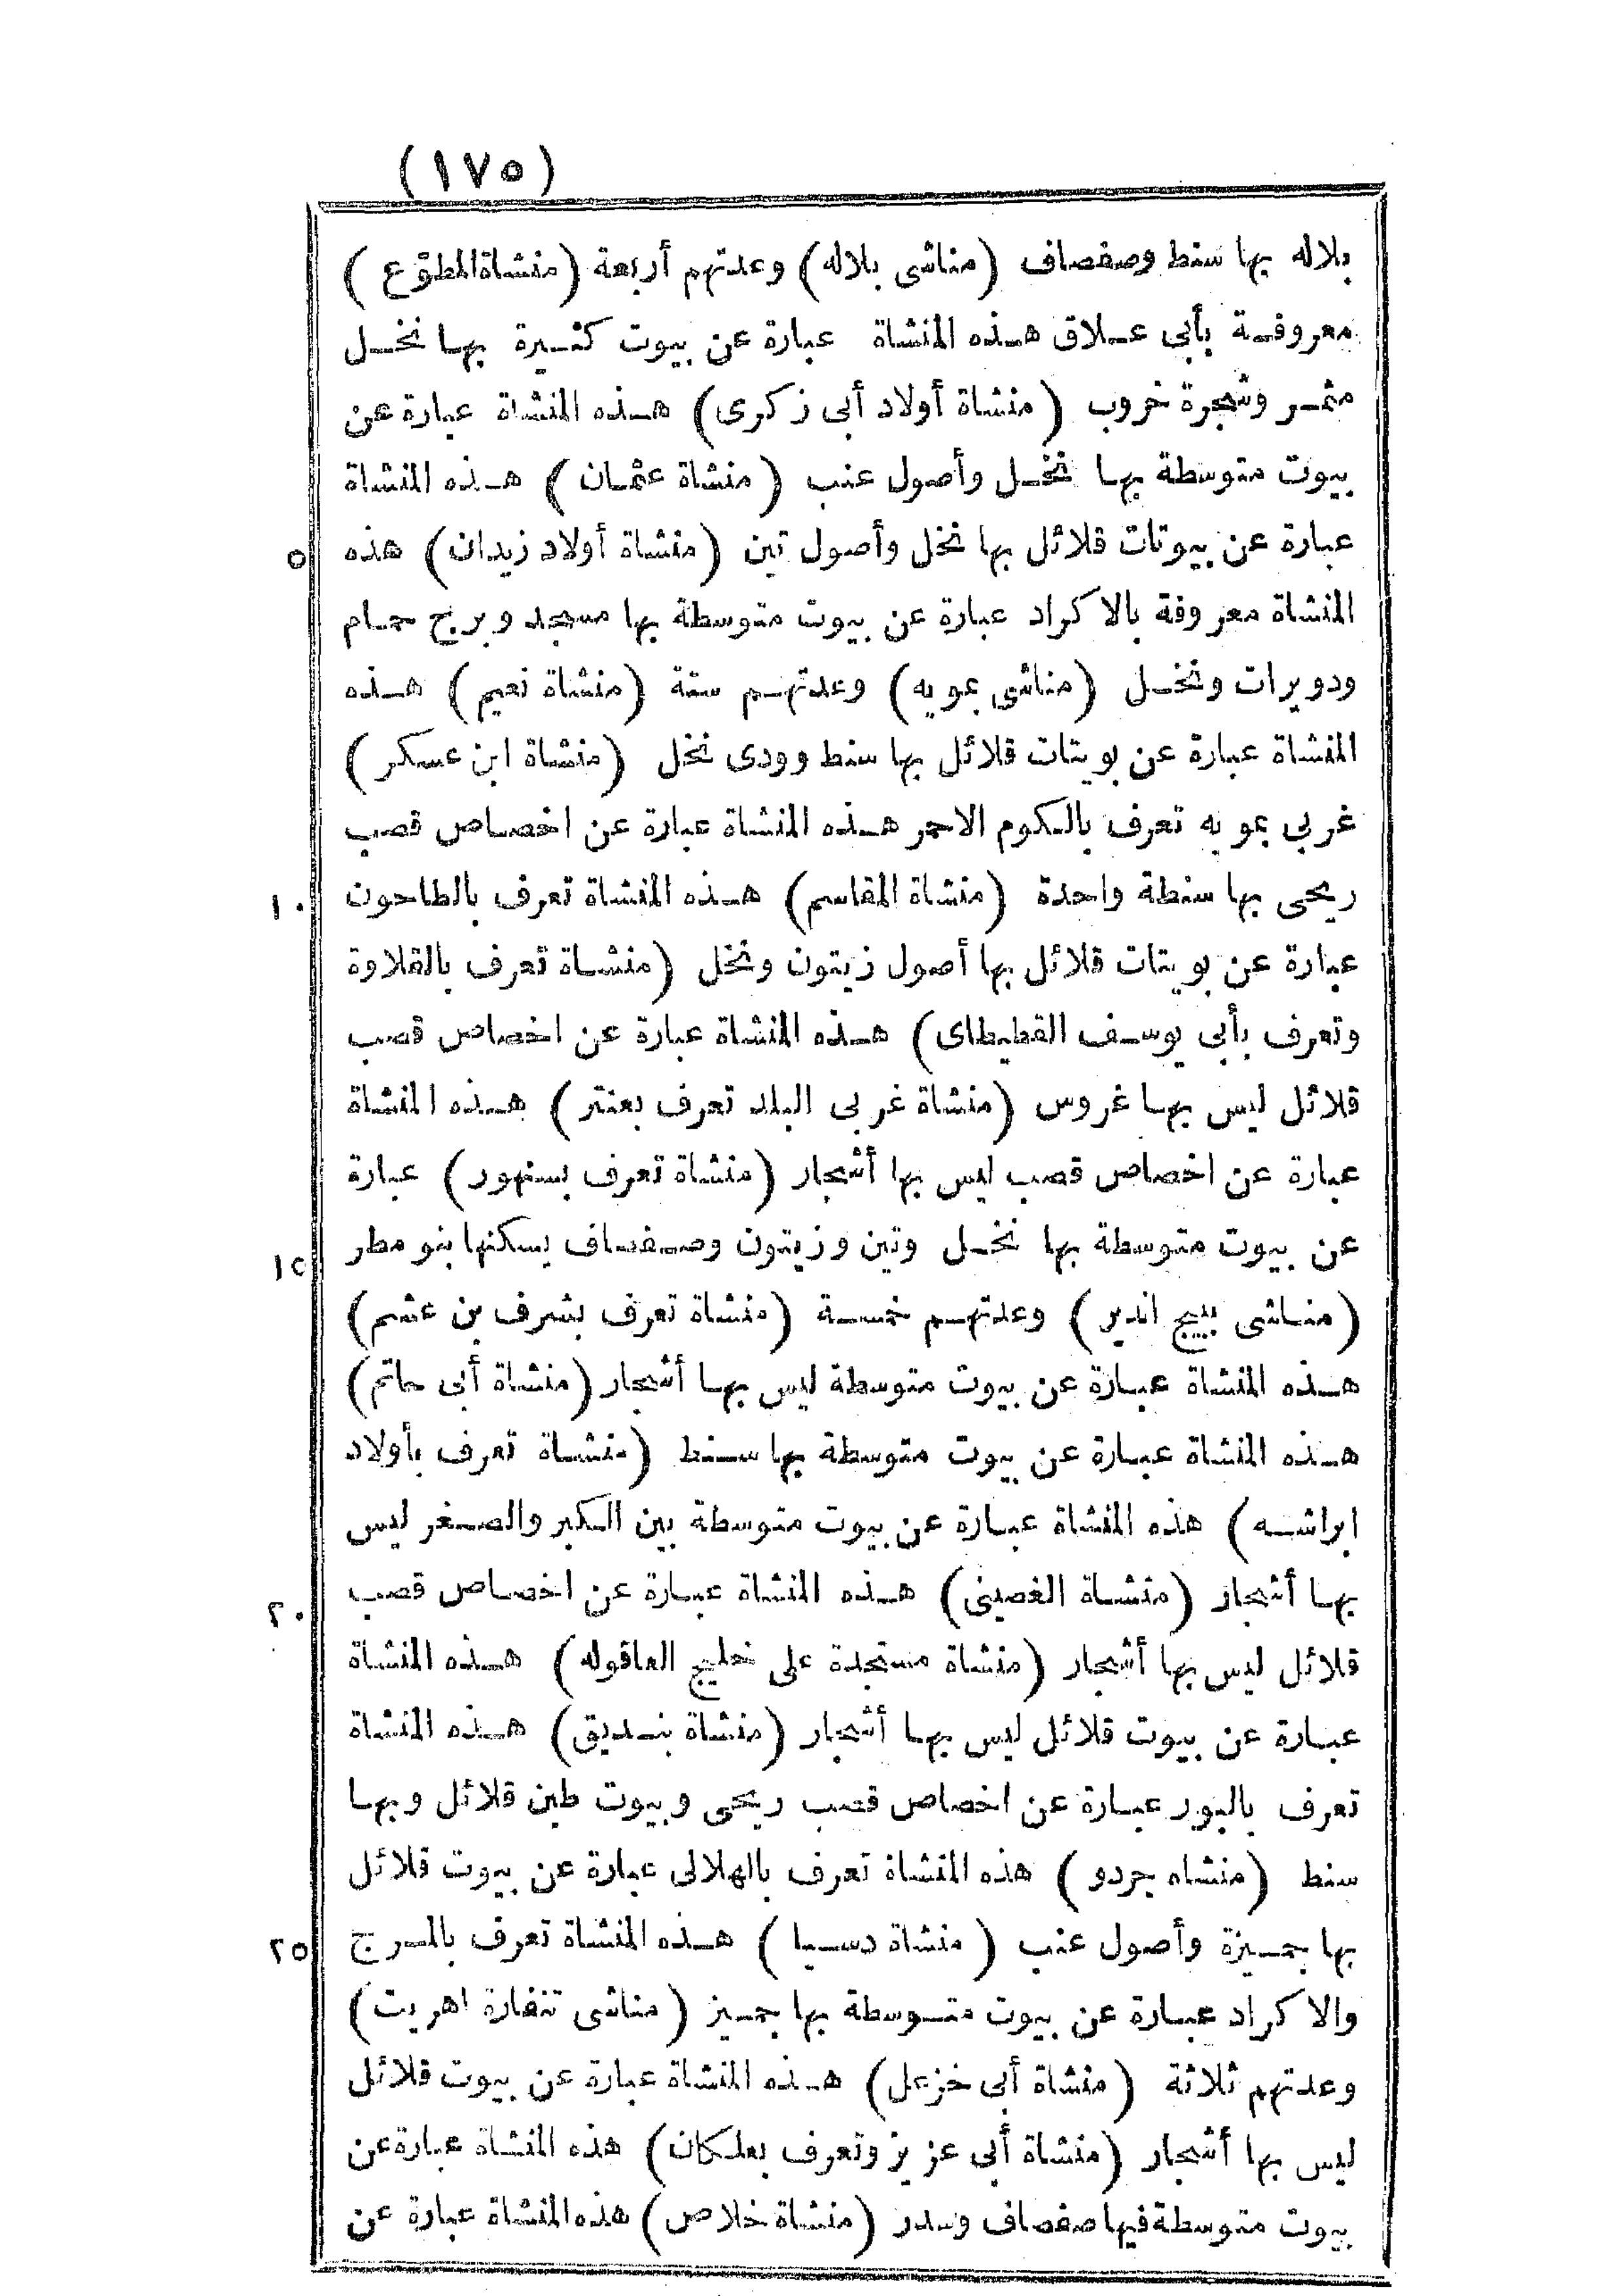 (١٧٥)
بلاله بها سنط وصفصاف (مناشى بلاله) وعدتهم أربعة (منشاة المطوّع)
معروفة بأبى علاق هذه المنشاة عبارة عن بيوت كثيرة بها نخل
مثمر وشجرة خروب (منشاة أولاد أبى زكرى) هذه المنشاة عبارة عن
بيوت متوسطة بها نخل وأصول عنب (منشاة عثمان) هذه المنشاة
عبارة عن بيوتات قلائل بها نخل وأصول تين (منشاة أولاد زيدان) هذه ٥
المنشاة معروفة بالاكراد عبارة عن بيوت متوسطة بها مسجد وبرج حمام
ودويرات ونخل (مناشى بمويه) وعدتهم ستة (منشاة نعيم) هذه
المنشاة عبارة عن بويتات قلائل بها سنط وودى نخل (منشاة ابن عسكر)
غربى بمويه تعرف بالكوم الاحمر هذه المنشاة عبارة عن اخصاص قصب
ريحى بها سنطة واحدة (منشاة المقاسم) هذه المنشاة تعرف بالطاحون ١٠
عبارة عن بويتات قلائل بها أصول زيتون ونخل (منشاة تعرف بالقلاوة
وتعرف بأبى يوسف القطيطاى) هذه المنشاة عبارة عن اخصاص قصب
قلائل ليس بها غروس (منشاة غربى البلد تعرف بعنتر) هذه المنشاة
عبارة عن اخصاص قصب ليس بها أشجار (منشاة تعرف بسنهور) عبارة
عن بيوت متوسطة بها نخل وتين وزيتون وصفصاف يسكنها بنو مطر ١٥
(مناشى بيج اندير) وعدتهم خمسة (منشاة تعرف بشرف بن عشم)
هذه المنشاة عبارة عن بيوت متوسطة ليس بها أشجار (منشاة أبى حاتم)
هذه المنشاة عبارة عن بيوت متوسطة بها سنط (منشاة تعرف بأولاد
ابراشه) هذه المنشاة عبارة عن بيوت متوسطة بين الكبر والصغر ليس
بها أشجار (منشاة الغصينى) هذه المنشاة عبارة عن اخصاص قصب ٢٠
قلائل ليس بها أشجار (منشاة مستجدة على خليج العاقوله) هذه المنشاة
عبارة عن بيوت قلائل ليس بها أشجار (منشاة بنديق) هذه المنشاة
تعرف بالبور عبارة عن اخصاص قصب ريحى وبيوت طين قلائل وبها
سنط (منشاه جردو) هذه المنشاة تعرف بالهلالى عبارة عن بيوت قلائل
بها جميزة وأصول عنب (منشاة دسيا) هذه المنشاة تعرف بالمرج ٢٥
والاكراد عبارة عن بيوت متوسطة بها جميز (مناشى تنفارة اهريت)
وعدتهم ثلاثة (منشاة أبى خزعل) هذه المنشاة عبارة عن بيوت قلائل
ليس بها أشجار (منشاة أبى عزيز وتعرف بعلكان) هذه المنشاة عبارة عن
بيوت متوسطة فيها صفصاف وسدر (منشاة خلاص) هذه المنشاة عبارة عن